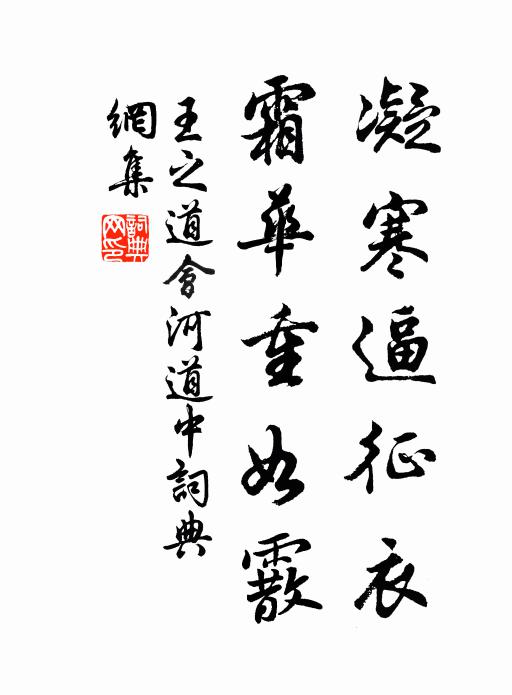 凝寒逼征衣
霜華重如霰
王之道會河道中詞典
網集
詞典網印